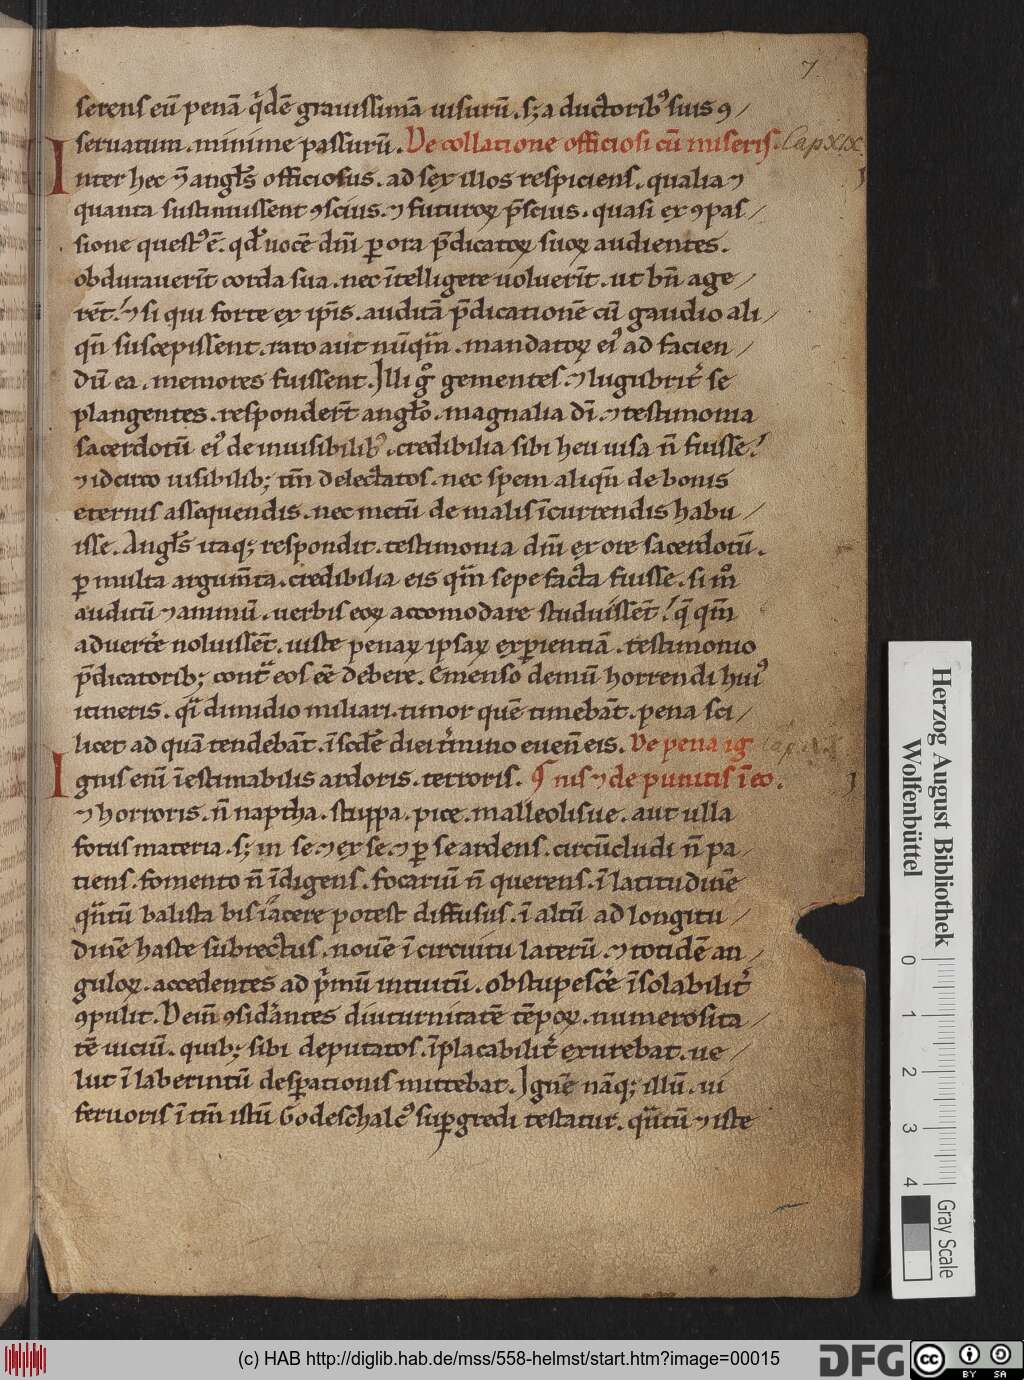 7
serens eū penā q̇dē grauissimā uisurū. s; a ductorib⁹ suis ꝯ/
seruatum. minime passurū. De collatione officiosi cū miseris. Cap XIX
Inter hec ⁊ angl̄s officiosus. ad sex illos respiciens. qualia ⁊
quanta sustinuissent ꝯscius. ⁊ futuroꝝ p̄scius. quasi ex ꝯpas/
sione quest⁹ ē. qd̄ uocē dn̄i ꝑ ora p̄dicatoꝝ suoꝝ audientes.
obdurauerīt corda sua. nec ītelligere uoluerīt. ut bn̄ age/
rēt. ⁊ si qui forte ex ip̄is. auditā p̄dicationē cū gaudio ali/
qn̄ suscepissent. raro aut nūqā. mandatoꝝ ei⁹ ad facien/
dū ea. memores fuissent. Illi gͦ gementes. ⁊ lugubrit̄ se
plangentes. respondert̄ angl̄o. magnalia dī. ⁊ testimonia
sacerdotū ei⁹ de inuisibilib⁹. credibilia sibi heu uisa n̄ fuisse.
⁊ idcirco uisibilib; tm̄ delectatos. nec spem aliqn̄ de bonis
eternis assequendis. nec metū de malis īcurrendis habu/
isse. Angl̄s itaq; respondit. testimonia dn̄i ex ore sacerdotū.
ꝑ multa argum̄ta. credibilia eis qm̄ sepe facta fuisse. si mͦ
auditū ⁊ animū. uerbis eoꝝ accomodare studuissēt. q̄ qm̄
aduert̄e noluissēt. iuste penaꝝ ipsaꝝ exꝑientiā. testimonio
p̄dicatorib; cont̄ eos eē debere. Emenso demū horrendi hui⁹
itineris. q̄i dimidio miliari. timor quē timebāt. pena sci/
licet ad quā tendebāt. ī scd̄e diei t̄mino euen̄ eis. De pena ig
Ignis enī īestimabilis ardoris. terroris. ¶ nis ⁊ de punitis ī eo.
⁊ horroris. n̄ naptha. stuppa. pice. malleolis ue. aut ulla
fotus materia. s; in se ⁊ ex se. ⁊ ꝑ se ardens. circūcludi n̄ pa/
tiens. fomento n̄ īdigens. focariū n̄ querens. ī latitudinē
qn̄tū balista bis iacere potest diffusus. ī altū ad longitu/
dinē haste subrectus. nouē ī circuitu laterū. ⁊ totidē an/
guloꝝ. accedentes ad p̄mū intuitū. obstupesc̄e īsolabilit̄
ꝯpulit. Dein̄ ꝯsid̄antes diuturnitatē tēpoꝝ. numerosita/
tē uiciū. quib; sibi deputatos. īplacabilit̄ exurebat. ue/
lut ī laberintū desꝑationis mittebat. Ignē nāq; illū. ui
feruoris ī tm̄ istū Godeschalc⁹ suꝑgredi testatur. qn̄tū ⁊ iste
Herzog August Bibliothek
Wolfenbüttel
0
1
2
3
4
Gray Scale
(c) HAB http://diglib.hab.de/mss/558-helmst/start.htm?image=00015
DFG
cc
BY SA